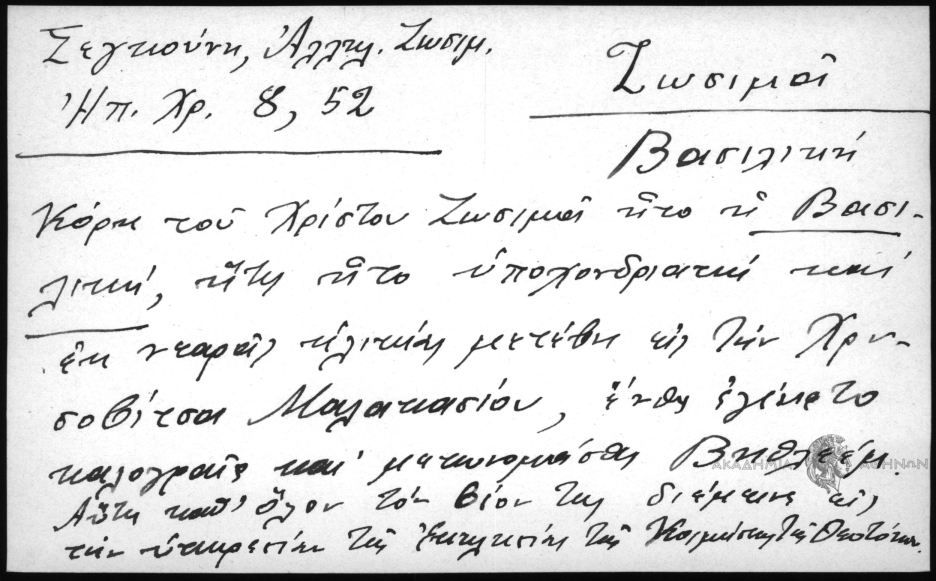 Σεγκούνη, Ἀλλη. Ζωσιμ.
Ἠπ. Χρ. 8, 52
Ζωσιμᾶ
Βασιλική
Κόρη τοῦ Χρίστου Ζωσιμᾶ ἦτο ἡ Βασι-
λική, ἥτις ἦτο ὑποχονδριακή καί
ἐκ νεαρᾶς ἡλικίας μετέβη εἰς τήν Χρυ-
σοβίτσα Μαλακασίου, ἔνθα ἐγένετο
καλογραῖα καί μετωνομάσθη Βηθλεέμ.
Αὕτη καθ' ὅλον τόν βίον της διέμεινε εἰς
τήν ὑπηρεσίαν τῆς Ἐκκλησίας τῆς Κοιμήσεως τῆς Θεοτόκου.
ΑΚΑΔΗΜΙΑ ΑΘΗΝΩΝ